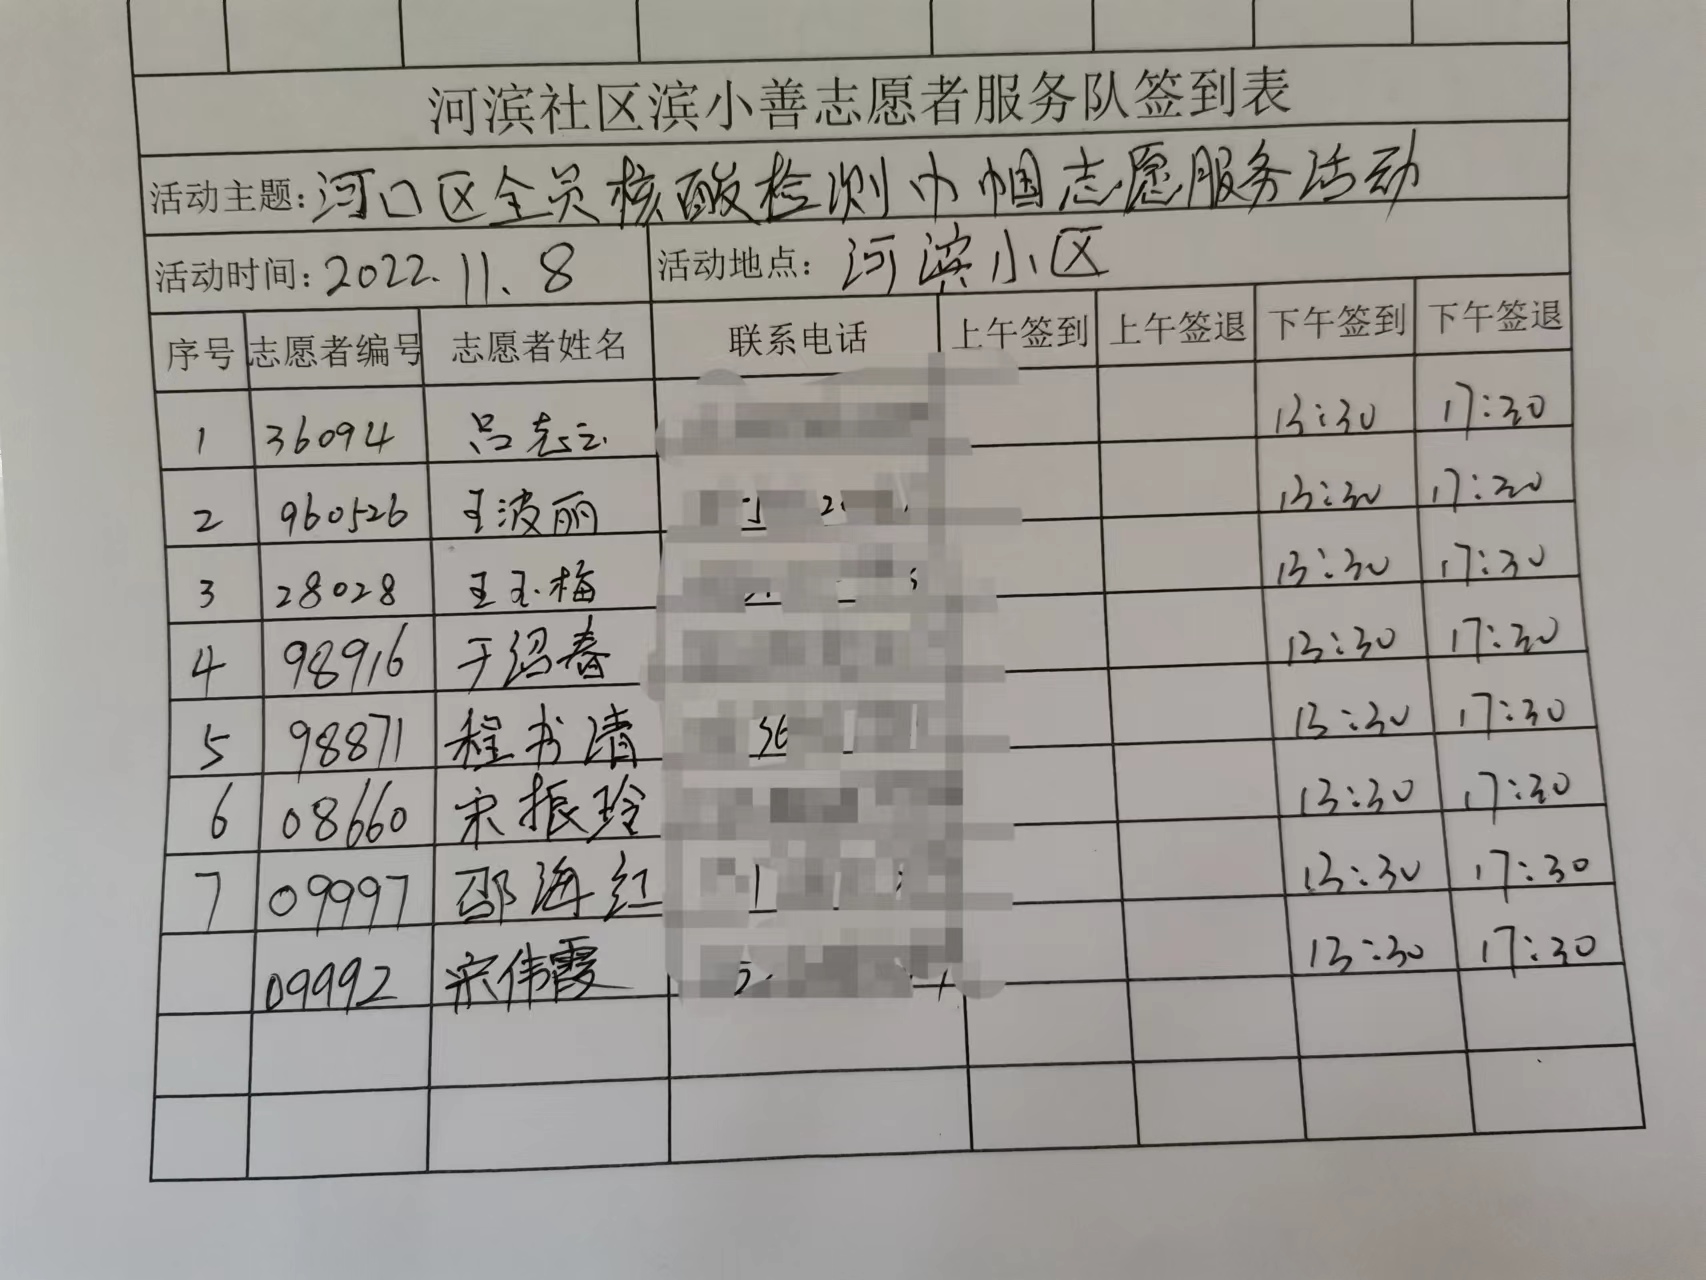 河滨社区滨小善志愿者服务队签到表
活动主题:河口区全员核酸检测巾帼志愿服务活动
活动时间:2022.11.8 活动地点:河滨小区
序号 志愿者编号 志愿者姓名 联系电话 上午签到 上午签退 下午签到 下午签退
1 36094 吕志云 13:30 17:30
2 960526 王波丽 13:30 17:30
3 28028 王玉梅 13:30 17:30
4 98916 于绍春 13:30 17:30
5 98871 程书清 13:30 17:30
6 08660 宋振玲 13:30 17:30
7 09997 邵海红 13:30 17:30
09992 宋伟霞 13:30 17:30